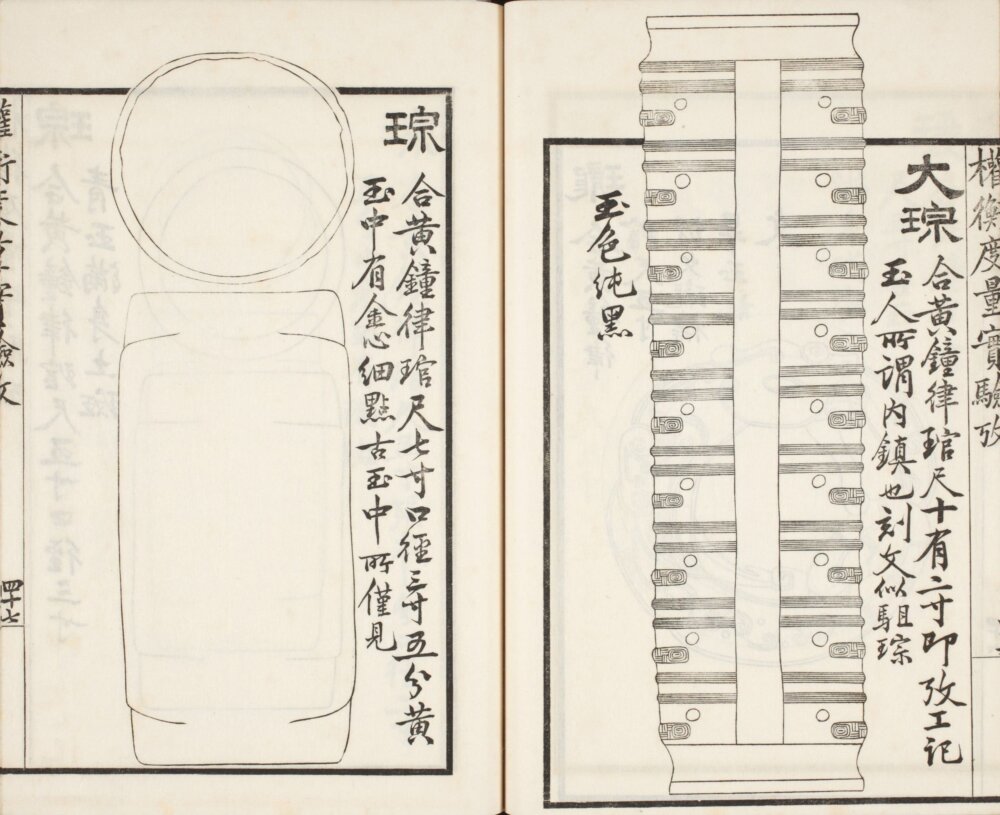 權衡度量實驗攷
大琮
合黃鐘律琯尺十有二寸即攷工記
玉人所謂內鎮也刻文似駔琮
玉色純黑
琮
合黃鐘律琯尺七寸口徑三寸五分黃
玉中有金心細點古玉中所僅見
四十七